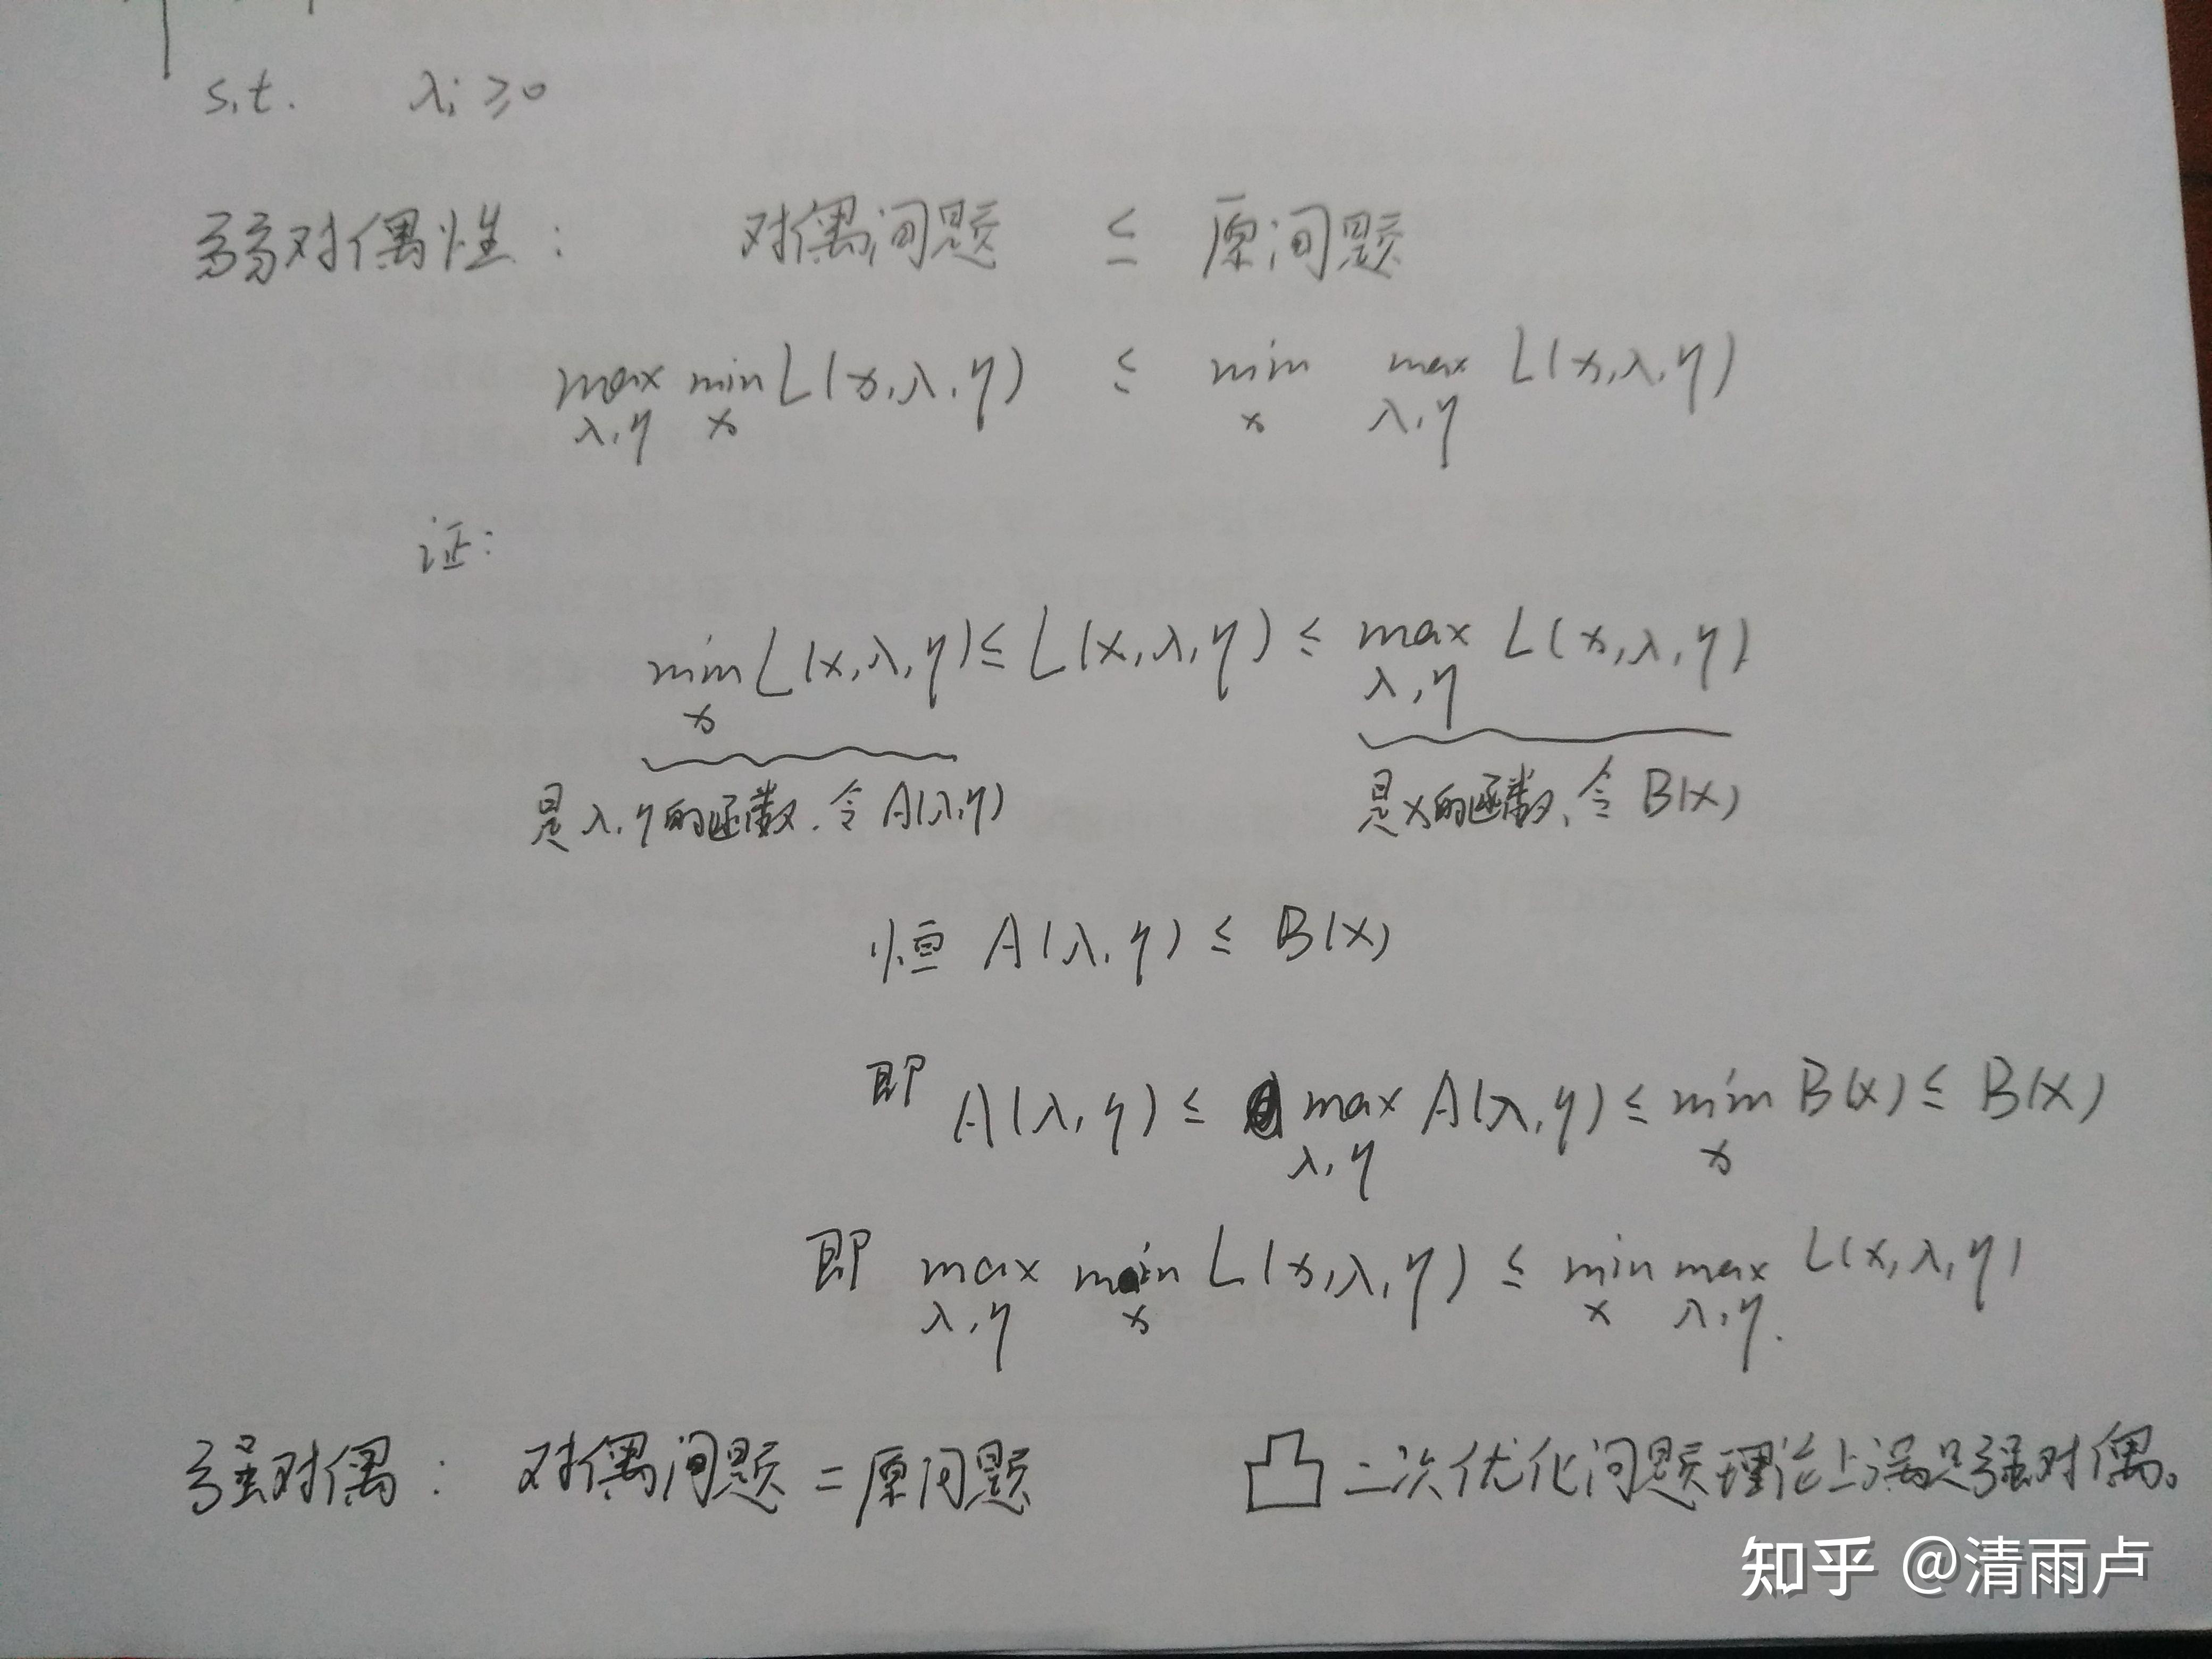 s.t. λi ≥ 0
弱对偶性: 对偶问题 ≤ 原问题
max min L(x,λ,η) ≤ min max L(x,λ,η)
λ,η x x λ,η
证:
min L(x,λ,η) ≤ L(x,λ,η) ≤ max L(x,λ,η)
x λ,η
是λ,η的函数,令A(λ,η) 是x的函数,令B(x)
恒 A(λ,η) ≤ B(x)
即 A(λ,η) ≤ max A(λ,η) ≤ min B(x) ≤ B(x)
λ,η x
即 max min L(x,λ,η) ≤ min max L(x,λ,η)
λ,η x x λ,η.
强对偶: 对偶问题 = 原问题 凸二次优化问题理论上满足强对偶。
知乎 @清雨卢